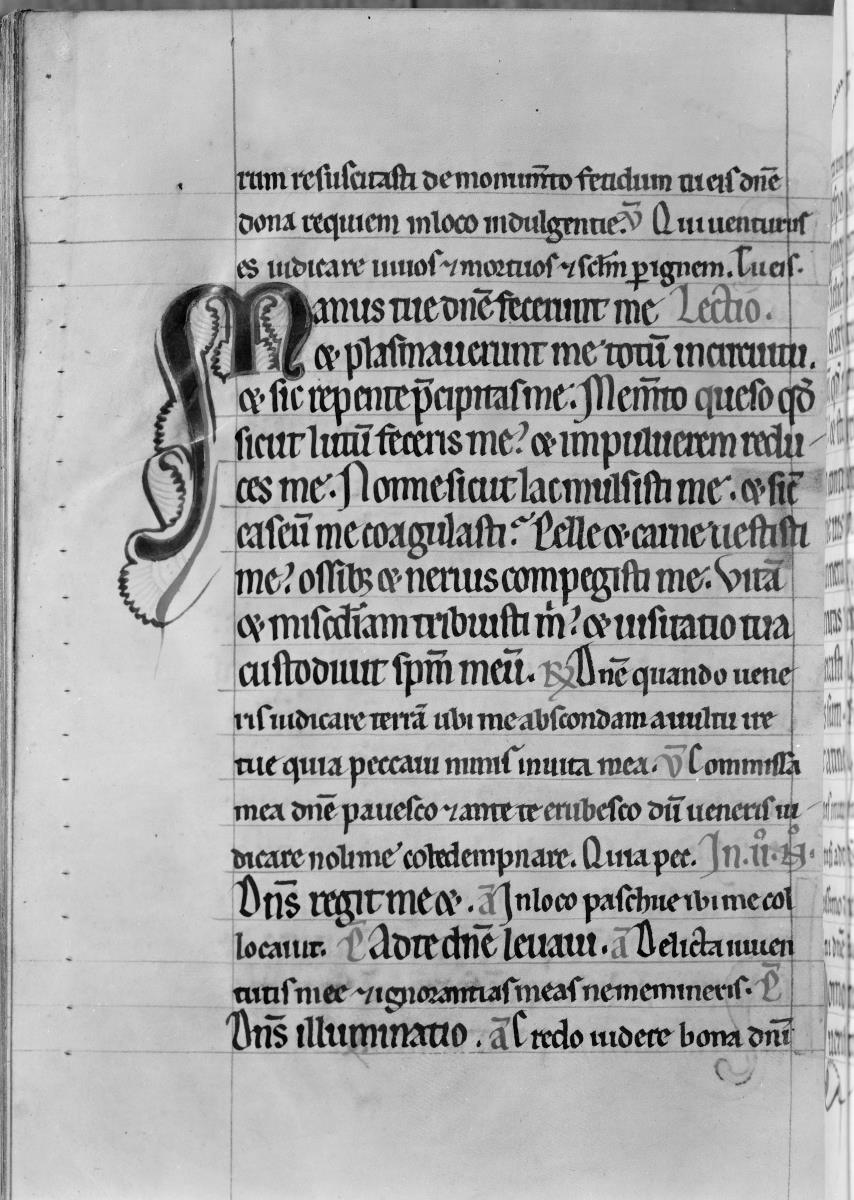 rum resuscitasti de monum̅to fetidum tu eis dn̅e
dona requiem in loco indulgentie. V̅ Qui uenturus
es iudicare uiuos ⁊ mortuos ⁊ sclm̅ ꝑ ignem. Tu eis.
Manus tue dn̅e fecerunt me Lectio.
⁊ plasmauerunt me totu̅ in circuitu.
⁊ sic repente p̅cipitas me. Mem̅to queso qd̅
sicut lutu̅ feceris me? ⁊ in puluerem redu
ces me. Nonne sicut lac mulsisti me. ⁊ sic̅
caseu̅ me coagulasti? Pelle ⁊ carne uestisti
me? ossibꝫ ⁊ neruis compegisti me. Vita̅
⁊ misc̅diam tribuisti m̅? ⁊ uisitatio tua
custodiuit sp̅m meu̅. ℟ Dn̅e quando uene
ris iudicare terra̅ ubi me abscondam a uultu ire
tue quia peccaui nimis in uita mea. V̅ Commissa
mea dn̅e pauesco ⁊ ante te erubesco du̅ ueneris iu
dicare noli me co̅dempnare. Quia pec. In .ii. N̊.
Dn̅s regit me ⁊. a̅ In loco paschue ibi me col
locauit. P̅ Ad te dn̅e leuaui. a̅ Delicta iuuen
tutis mee ⁊ ignorantias meas ne memineris. P̅
Dn̅s illuminatio. a̅ Credo uidere bona dn̅i